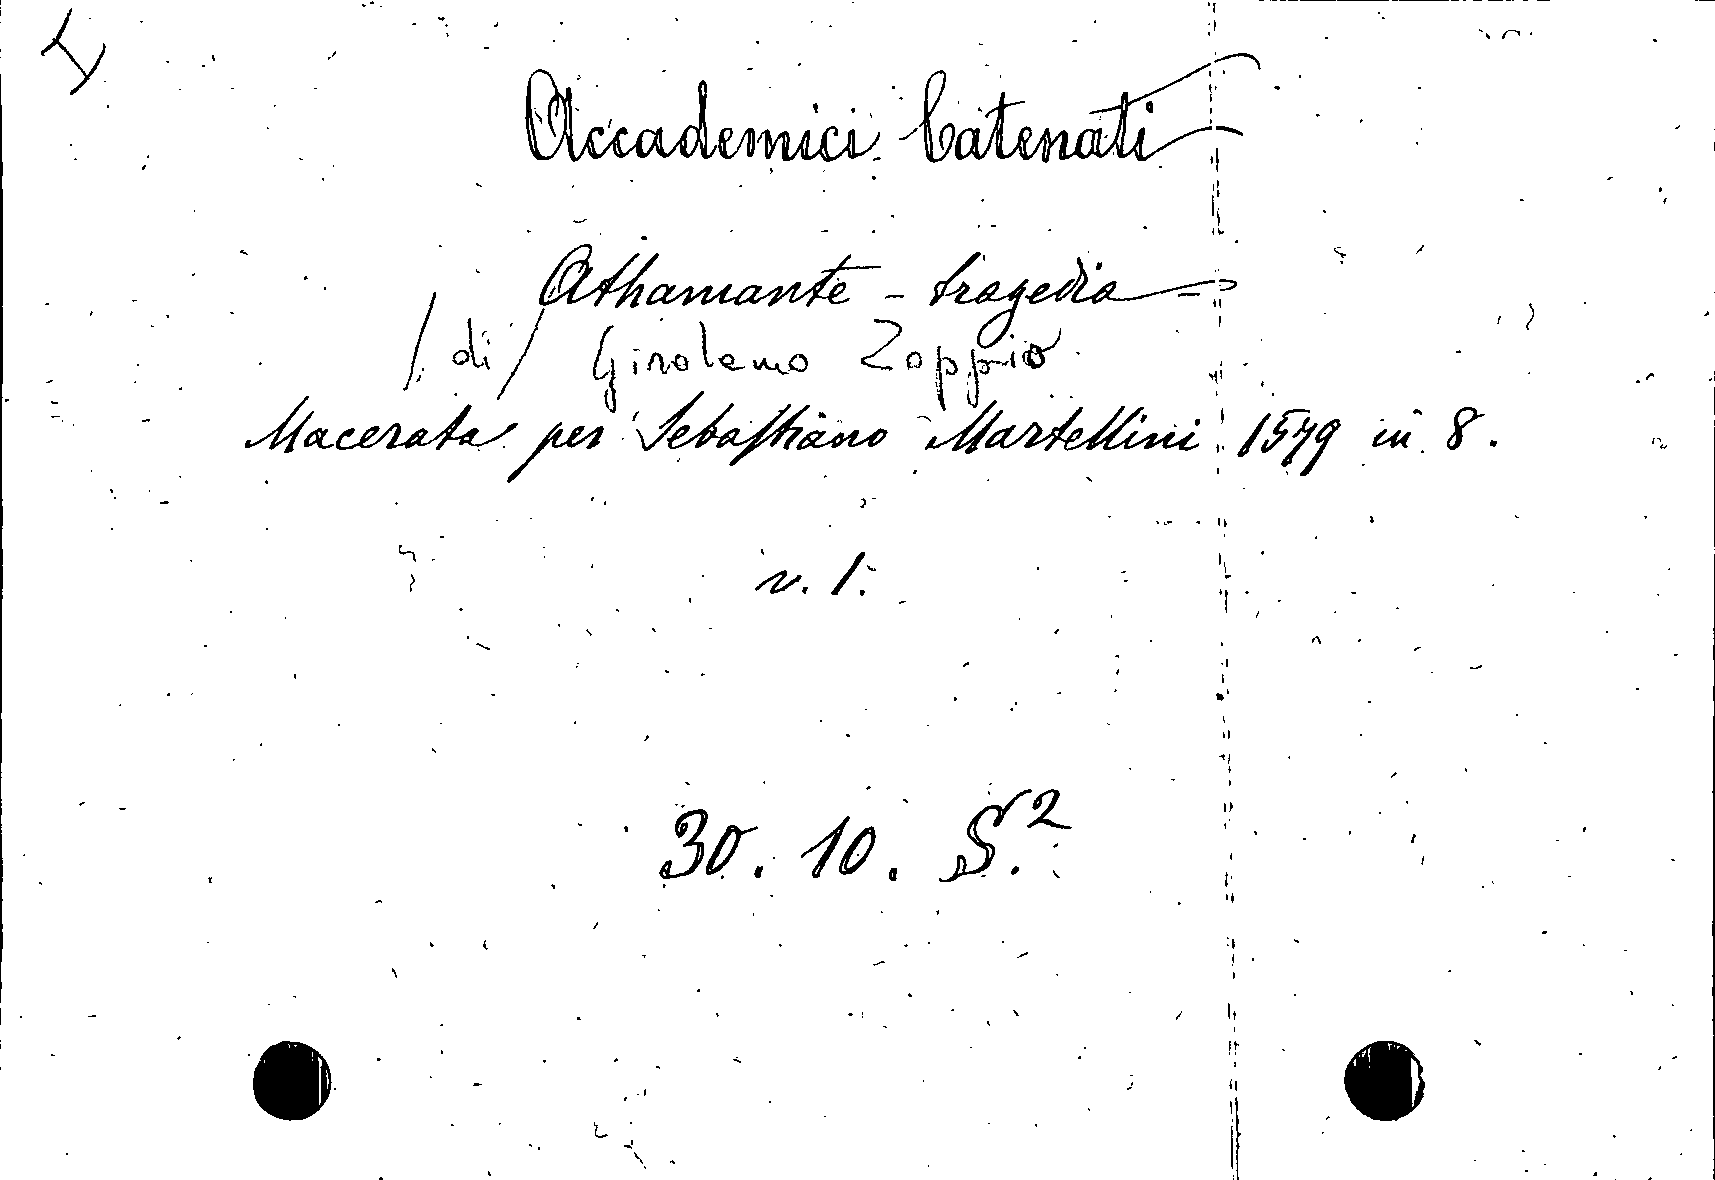 I
Accademici Catenati
Athamante - tragedia =
/ di / Girolamo Zoppio
Macerata per Sebastiano Martellini 1579 in 8.
v. 1.
30. 10. S.²